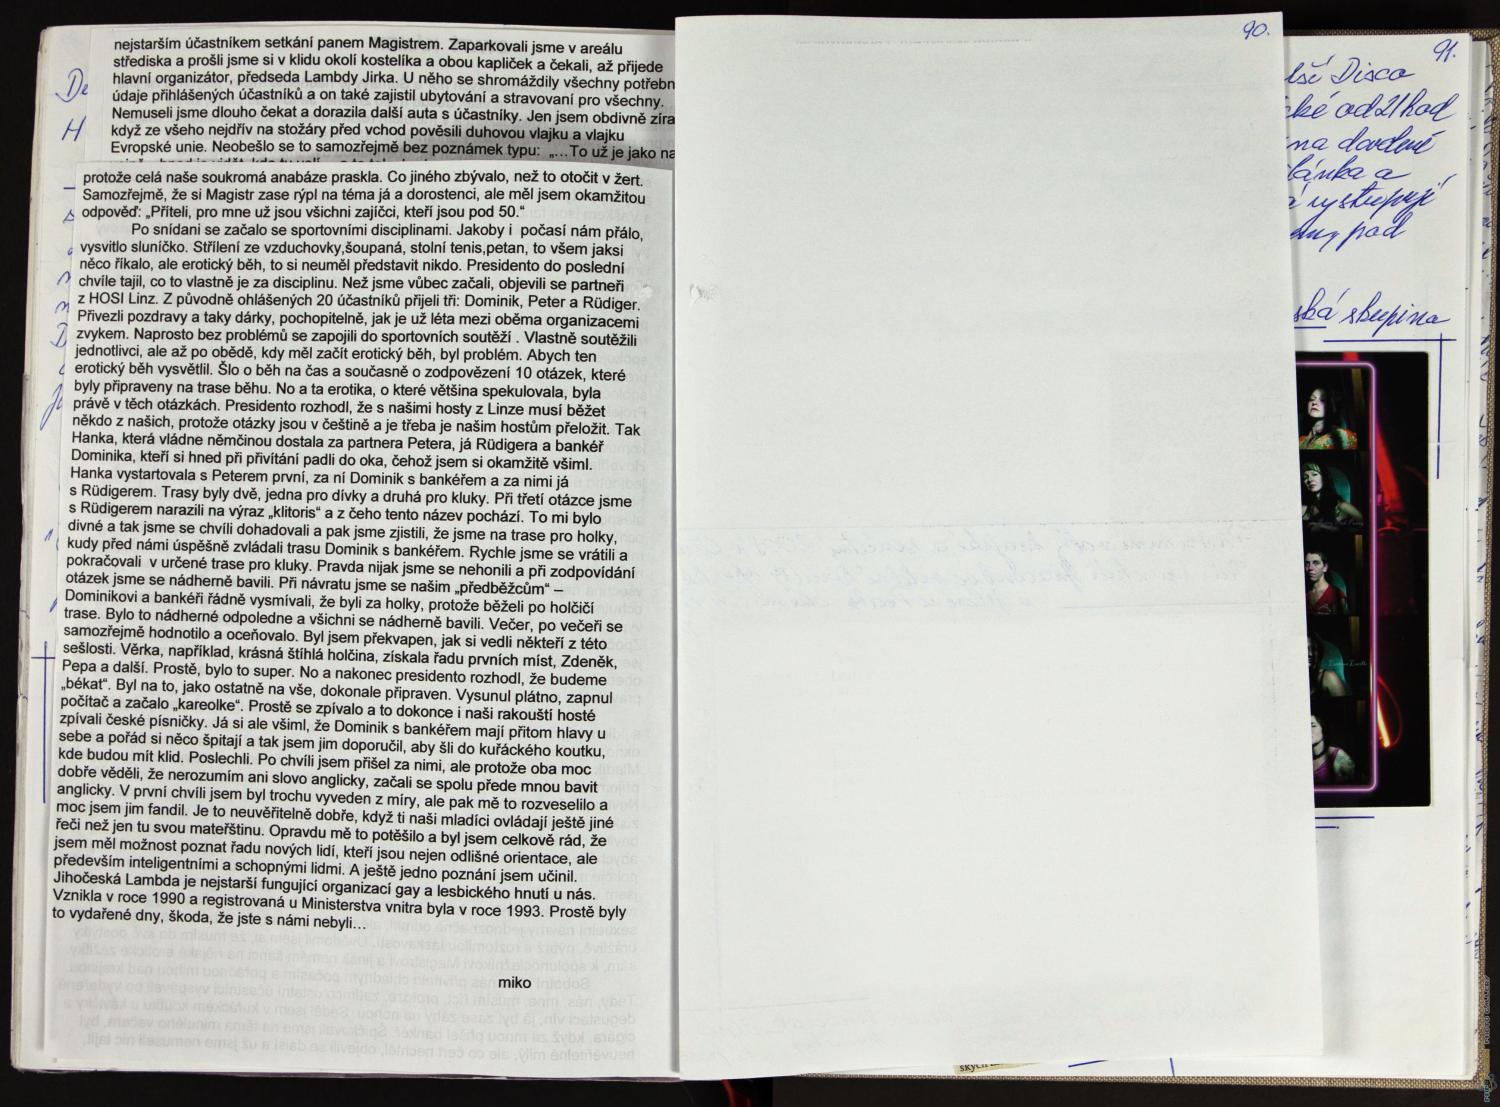 nejstarším účastníkem setkání panem Magistrem. Zaparkovali jsme v areálu
střediska a prošli jsme si v klidu okolí kostelíka a obou kapliček a čekali, až přijede
hlavní organizátor, předseda Lambdy Jirka. U něho se shromáždily všechny potřebn
údaje přihlášených účastníků a on také zajistil ubytování a stravovaní pro všechny.
Nemuseli jsme dlouho čekat a dorazila další auta s účastníky. Jen jsem obdivně zíra
když ze všeho nejdřív na stožáry před vchod pověsili duhovou vlajku a vlajku
Evropské unie. Neobešlo se to samozřejmě bez poznámek typu: „…To už je jako na
protože celá naše soukromá anabáze praskla. Co jiného zbývalo, než to otočit v žert.
Samozřejmě, že si Magistr zase rýpl na téma já a dorostenci, ale měl jsem okamžitou
odpověď: „Příteli, pro mne už jsou všichni zajíčci, kteří jsou pod 50.“
Po snídani se začalo se sportovními disciplinami. Jakoby i počasí nám přálo,
vysvitlo sluníčko. Střílení ze vzduchovky,šoupaná, stolní tenis,petan, to všem jaksi
něco říkalo, ale erotický běh, to si neuměl představit nikdo. Presidento do poslední
chvíle tajil, co to vlastně je za disciplinu. Než jsme vůbec začali, objevili se partneři
z HOSI Linz. Z původně ohlášených 20 účastníků přijeli tři: Dominik, Peter a Rüdiger.
Přivezli pozdravy a taky dárky, pochopitelně, jak je už léta mezi oběma organizacemi
zvykem. Naprosto bez problémů se zapojili do sportovních soutěží . Vlastně soutěžili
jednotlivci, ale až po obědě, kdy měl začít erotický běh, byl problém. Abych ten
erotický běh vysvětlil. Šlo o běh na čas a současně o zodpovězení 10 otázek, které
byly připraveny na trase běhu. No a ta erotika, o které většina spekulovala, byla
právě v těch otázkách. Presidento rozhodl, že s našimi hosty z Linze musí běžet
někdo z našich, protože otázky jsou v češtině a je třeba je našim hostům přeložit. Tak
Hanka, která vládne němčinou dostala za partnera Petera, já Rüdigera a bankéř
Dominika, kteří si hned při přivítání padli do oka, čehož jsem si okamžitě všiml.
Hanka vystartovala s Peterem první, za ní Dominik s bankéřem a za nimi já
s Rüdigerem. Trasy byly dvě, jedna pro dívky a druhá pro kluky. Při třetí otázce jsme
s Rüdigerem narazili na výraz „klitoris“ a z čeho tento název pochází. To mi bylo
divné a tak jsme se chvíli dohadovali a pak jsme zjistili, že jsme na trase pro holky,
kudy před námi úspěšně zvládali trasu Dominik s bankéřem. Rychle jsme se vrátili a
pokračovali v určené trase pro kluky. Pravda nijak jsme se nehonili a při zodpovídání
otázek jsme se nádherně bavili. Při návratu jsme se našim „předběžcům“ –
Dominikovi a bankéři řádně vysmívali, že byli za holky, protože běželi po holčičí
trase. Bylo to nádherné odpoledne a všichni se nádherně bavili. Večer, po večeři se
samozřejmě hodnotilo a oceňovalo. Byl jsem překvapen, jak si vedli někteří z této
sešlosti. Věrka, například, krásná štíhlá holčina, získala řadu prvních míst, Zdeněk,
Pepa a další. Prostě, bylo to super. No a nakonec presidento rozhodl, že budeme
„békat“. Byl na to, jako ostatně na vše, dokonale připraven. Vysunul plátno, zapnul
počítač a začalo „kareolke“. Prostě se zpívalo a to dokonce i naši rakouští hosté
zpívali české písničky. Já si ale všiml, že Dominik s bankéřem mají přitom hlavy u
sebe a pořád si něco špitají a tak jsem jim doporučil, aby šli do kuřáckého koutku,
kde budou mít klid. Poslechli. Po chvíli jsem přišel za nimi, ale protože oba moc
dobře věděli, že nerozumím ani slovo anglicky, začali se spolu přede mnou bavit
anglicky. V první chvíli jsem byl trochu vyveden z míry, ale pak mě to rozveselilo a
moc jsem jim fandil. Je to neuvěřitelně dobře, když ti naši mladíci ovládají ještě jiné
řeči než jen tu svou mateřštinu. Opravdu mě to potěšilo a byl jsem celkově rád, že
jsem měl možnost poznat řadu nových lidí, kteří jsou nejen odlišné orientace, ale
především inteligentními a schopnými lidmi. A ještě jedno poznání jsem učinil.
Jihočeská Lambda je nejstarší fungující organizací gay a lesbického hnutí u nás.
Vznikla v roce 1990 a registrovaná u Ministerstva vnitra byla v roce 1993. Prostě byly
to vydařené dny, škoda, že jste s námi nebyli…
miko
90.
91.
Disco
ké od 21 hod
na dovdené
lánka a
vystupují
pod
ská skupina